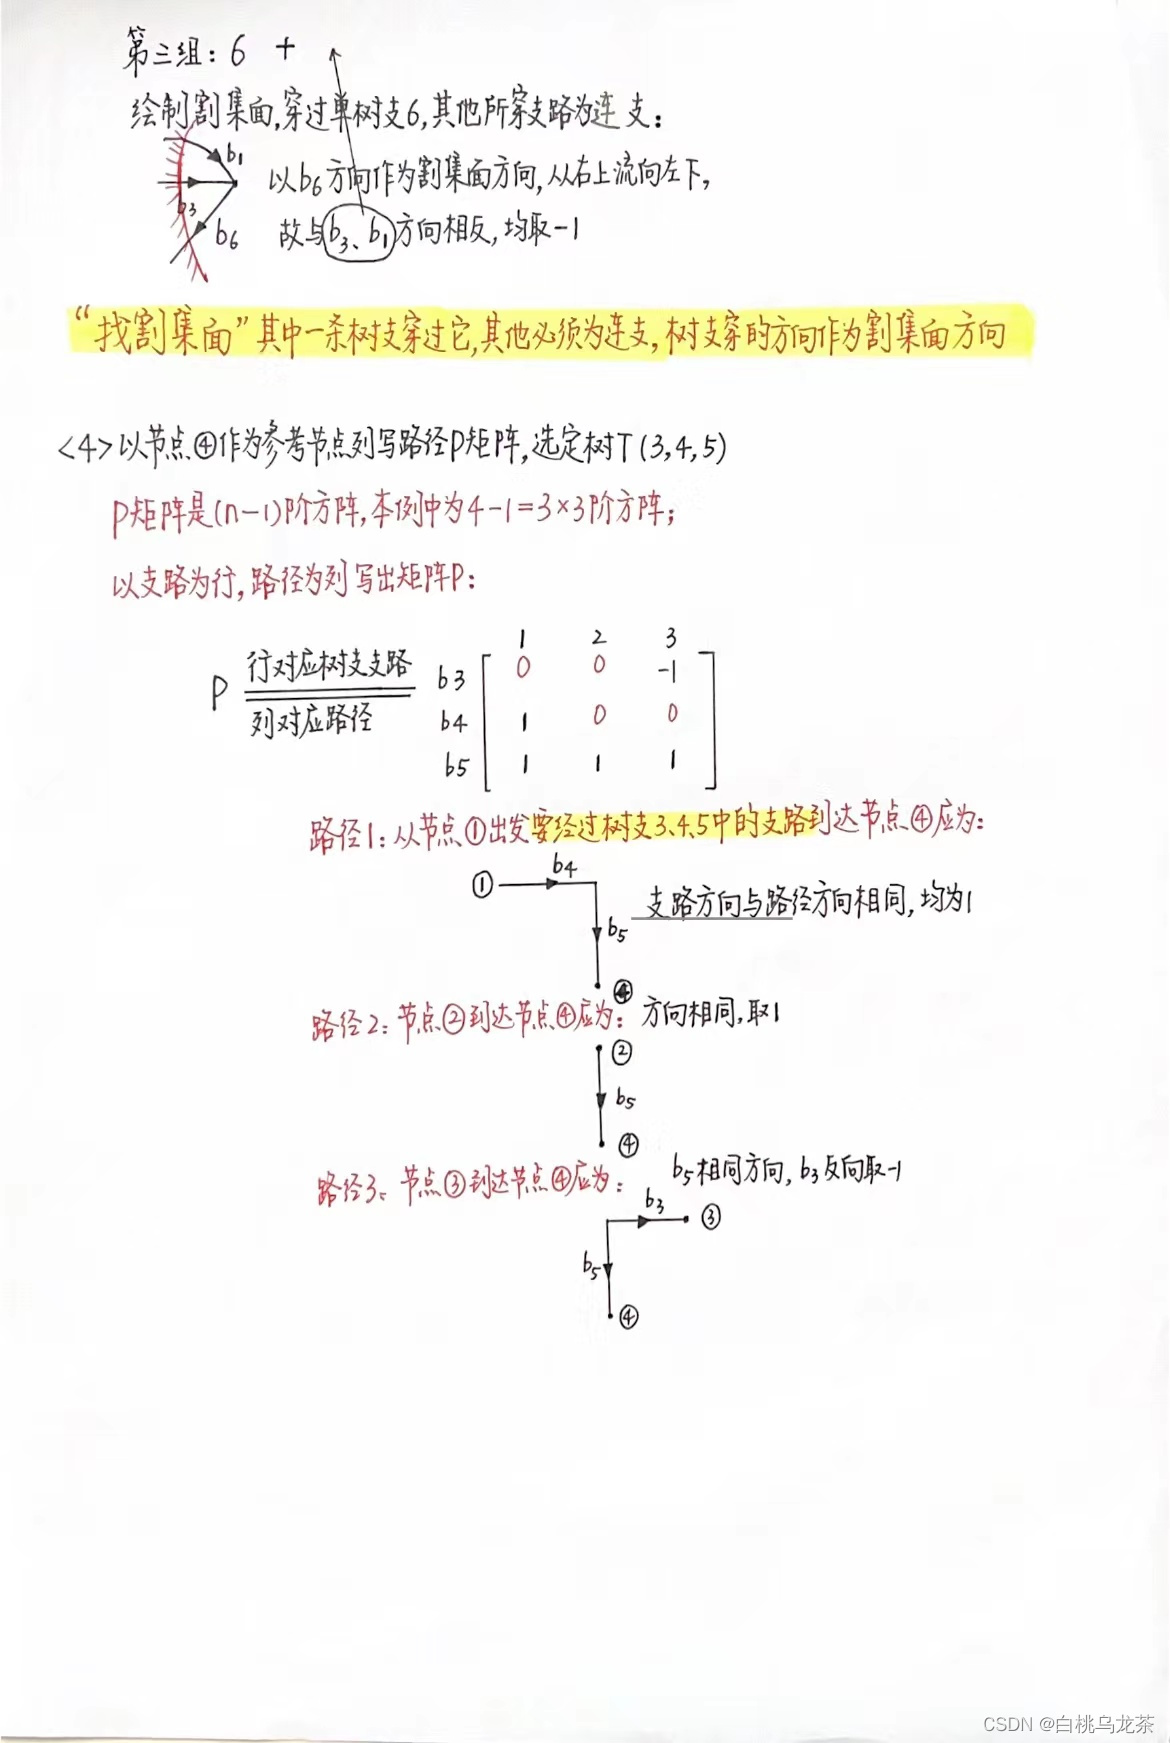 第三组：6 +
绘制割集面，穿过单树支6，其他所穿支路为连支：
b1
b3
b6
以b6方向作为割集面方向，从右上流向左下，
故与b3、b1方向相反，均取-1
“找割集面”其中一条树支穿过它，其他必须为连支，树支穿的方向作为割集面方向
<4>以节点④作为参考节点列写路径P矩阵，选定树T(3,4,5)
P矩阵是(n-1)阶方阵，本例中为4-1=3×3阶方阵；
以支路为行，路径为列写出矩阵P：
1 2 3
P 行对应树支支路
列对应路径
b3 0 0 -1
b4 1 0 0
b5 1 1 1
路径1：从节点①出发要经过树支3、4、5中的支路到达节点④应为：
① b4
b5
④
支路方向与路径方向相同，均为1
路径2：节点②到达节点④应为：方向相同，取1
②
b5
④
路径3、节点③到达节点④应为：
b5相同方向，b3反向取-1
b3 ③
b5
④
CSDN @白桃乌龙茶